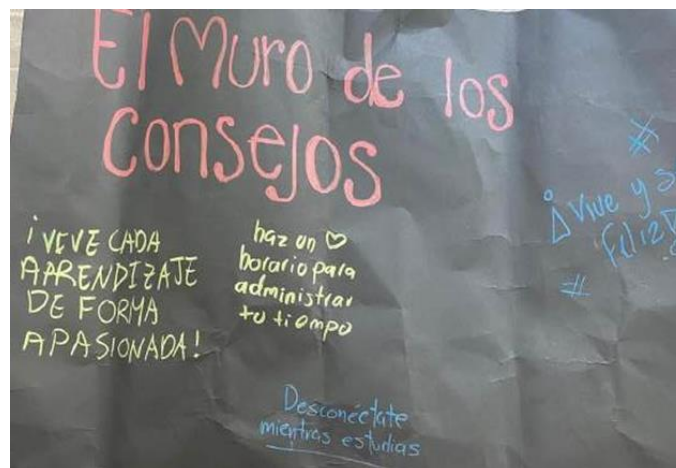 El Muro de los
Consejos
¡VIVE CADA
APRENDIZAJE
DE FORMA
APASIONADA!
haz un ♡
horario para
administrar
tu tiempo
Vive y s
feliz
Desconéctate
mientras estudias